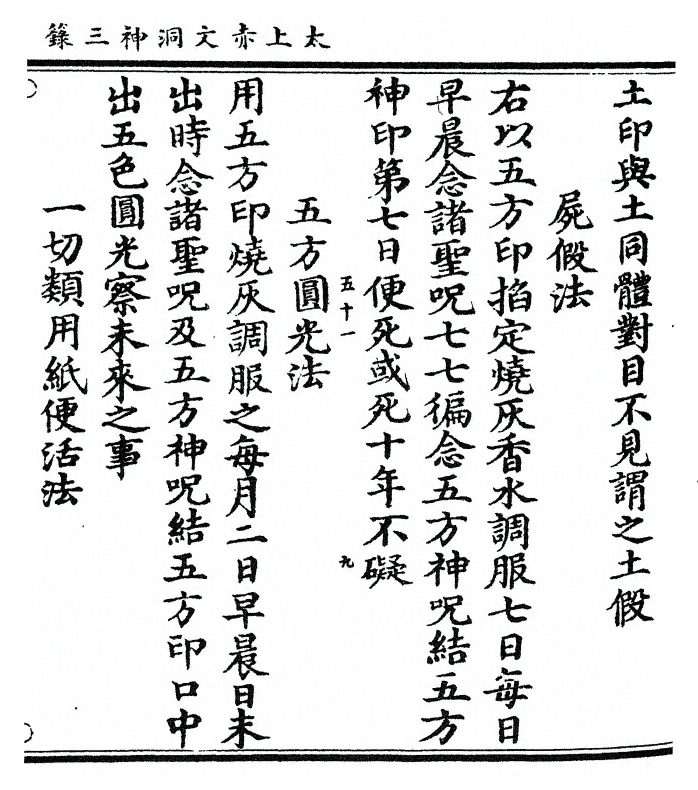 太上赤文洞神三籙
土印與土同體對目不見謂之土假
屍假法
右以五方印掐定燒灰香水調服七日每日
早晨念諸聖呪七七徧念五方神呪結五方
神印第七日便死或死十年不礙
五十一
九
五方圓光法
用五方印燒灰調服之每月二日早晨日未
出時念諸聖呪及五方神呪結五方印口中
出五色圓光察未來之事
一切類用紙便活法